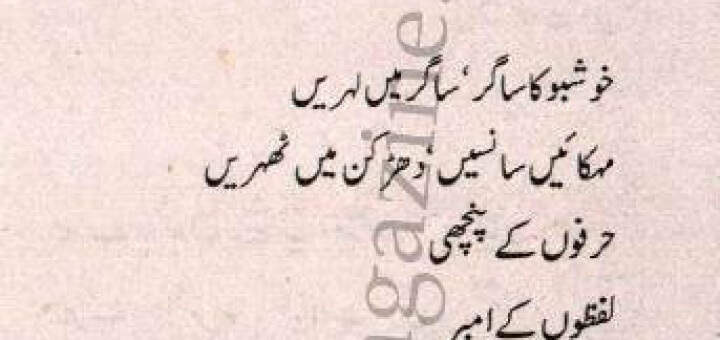 خوشبو کا ساگر، ساگر میں لہریں
مہکائیں سانسیں، دھڑکن میں ٹھہریں
حرفوں کے پنچھی
لفظوں کے امبر
agazine